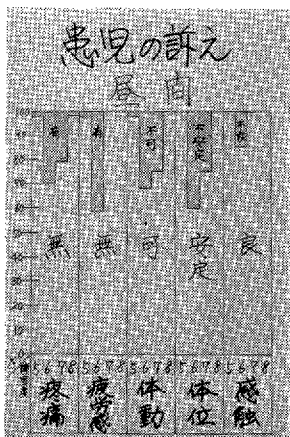 患児の訴え
昼間
100
90
80
70
60
50
40
30
20
10
0
有 有 不可 不安定 不良
無 無 可 安定 良
5678 5678 5678 5678 5678
疼痛 疲労感 体動 体位 感触